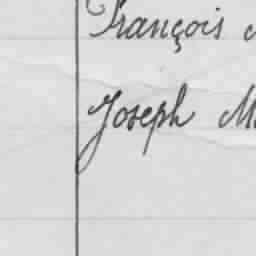 François
Joseph M